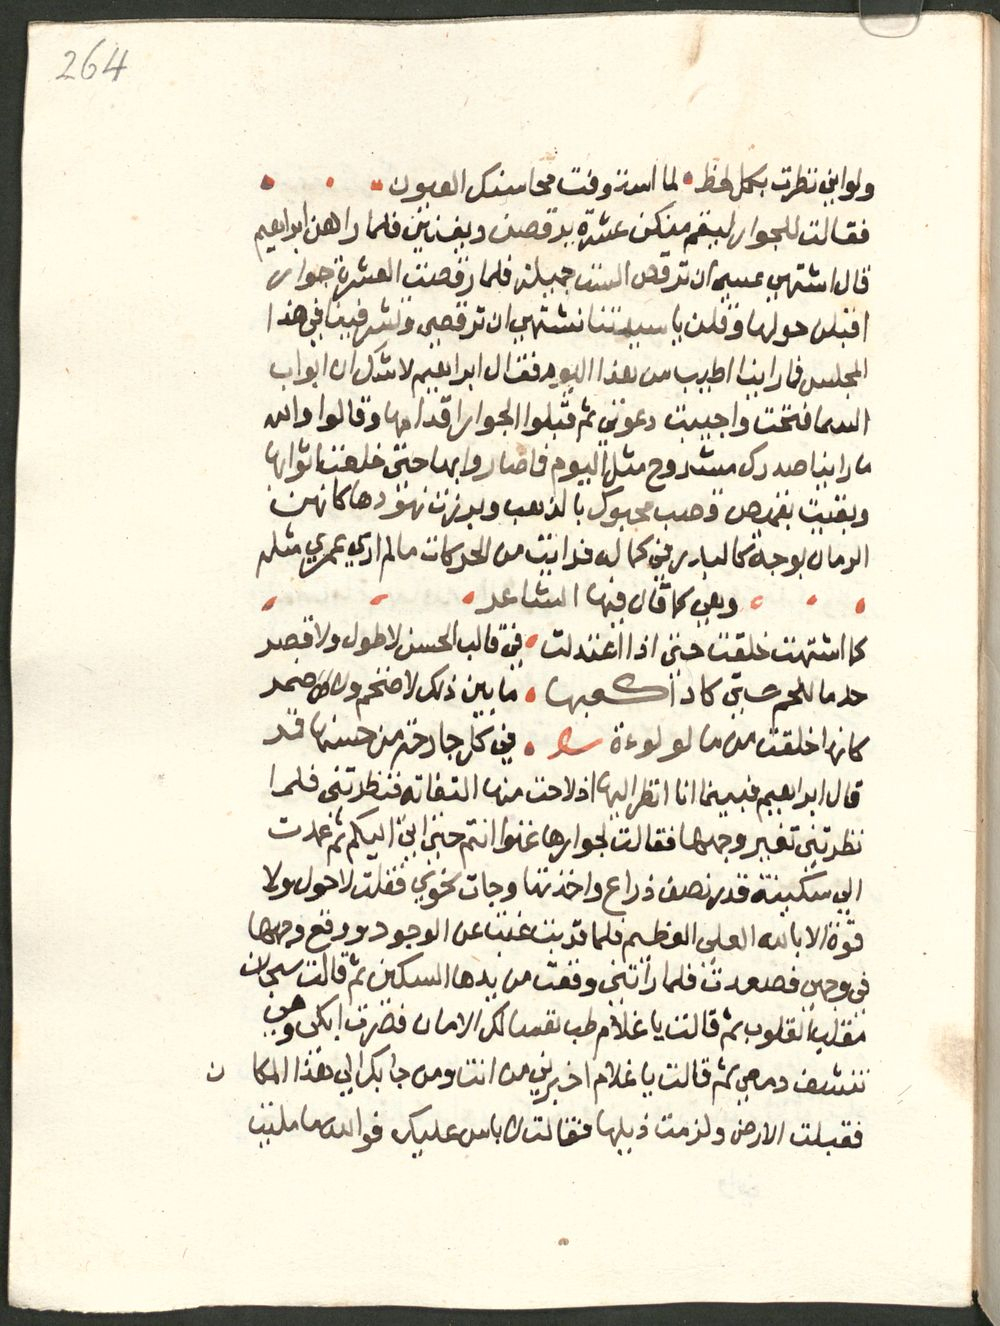 264
ولو اني نظرت بكل لحظ لما استوفت محاسنك العيون
فقالت للجوار ليقم منكن عشرة يرقصن ويغنين فلما راهن ابراهيم
قال اشتهي عسى ان ترقص الست جميلة فلما رقصت العشرة جوار
اقبلن حولها وقلن يا سيدتنا نشتهي ان ترقصي وتشرفينا في هذا
المجلس فما راينا اطيب من هذا اليوم فقال ابراهيم لا شك ان ابواب
السما فتحت واجيبت دعوتي ثم قبلوا الجوار اقدامها وقالوا والله
ما راينا صدرك مشروح مثل اليوم فما زالوا بها حتى خلعت اثوابها
وبقيت بقميص قصب محبوك بالذهب وبرزت نهودها كانهن
الرمان بوجه كالبدر في كماله فرايت من الحركات ما لم اري عمري مثله
وهي كما قال فيها الشاعر
كما اشتهت خلقت حتى اذا اعتدلت في قالب الحسن لا طول ولا قصر
جارحة من حسنها
كانها خلقت من ما لولوءة في كل جارحة من حسنها قمر
قال ابراهيم فبينما انا انظر اليها اذ لاحت منها التفاته فنظرتني فلما
نظرتني تغير وجهها فقالت لجوارها غنوا انتم حتى اجي اليكم ثم عمدت
الي سكينة قدر نصف ذراع واخذتها وجات نحوي فقلت لا حول ولا
قوة الا بالله العلي العظيم فلما قربت غبت عن الوجود ووقع وجهها
في وجهي فلما راتني وقعت من يدها السكين ثم قالت سبحان
مقلب القلوب ثم قالت يا غلام طب نفسا لك الامان فصرت ابكي وهي
تنشف دمعي ثم قالت يا غلام اخبرني من انت ومن جا بك الي هذا المكان
فقبلت الارض ولزمت ذيلها فقالت لا باس عليك فوالله ما مليت